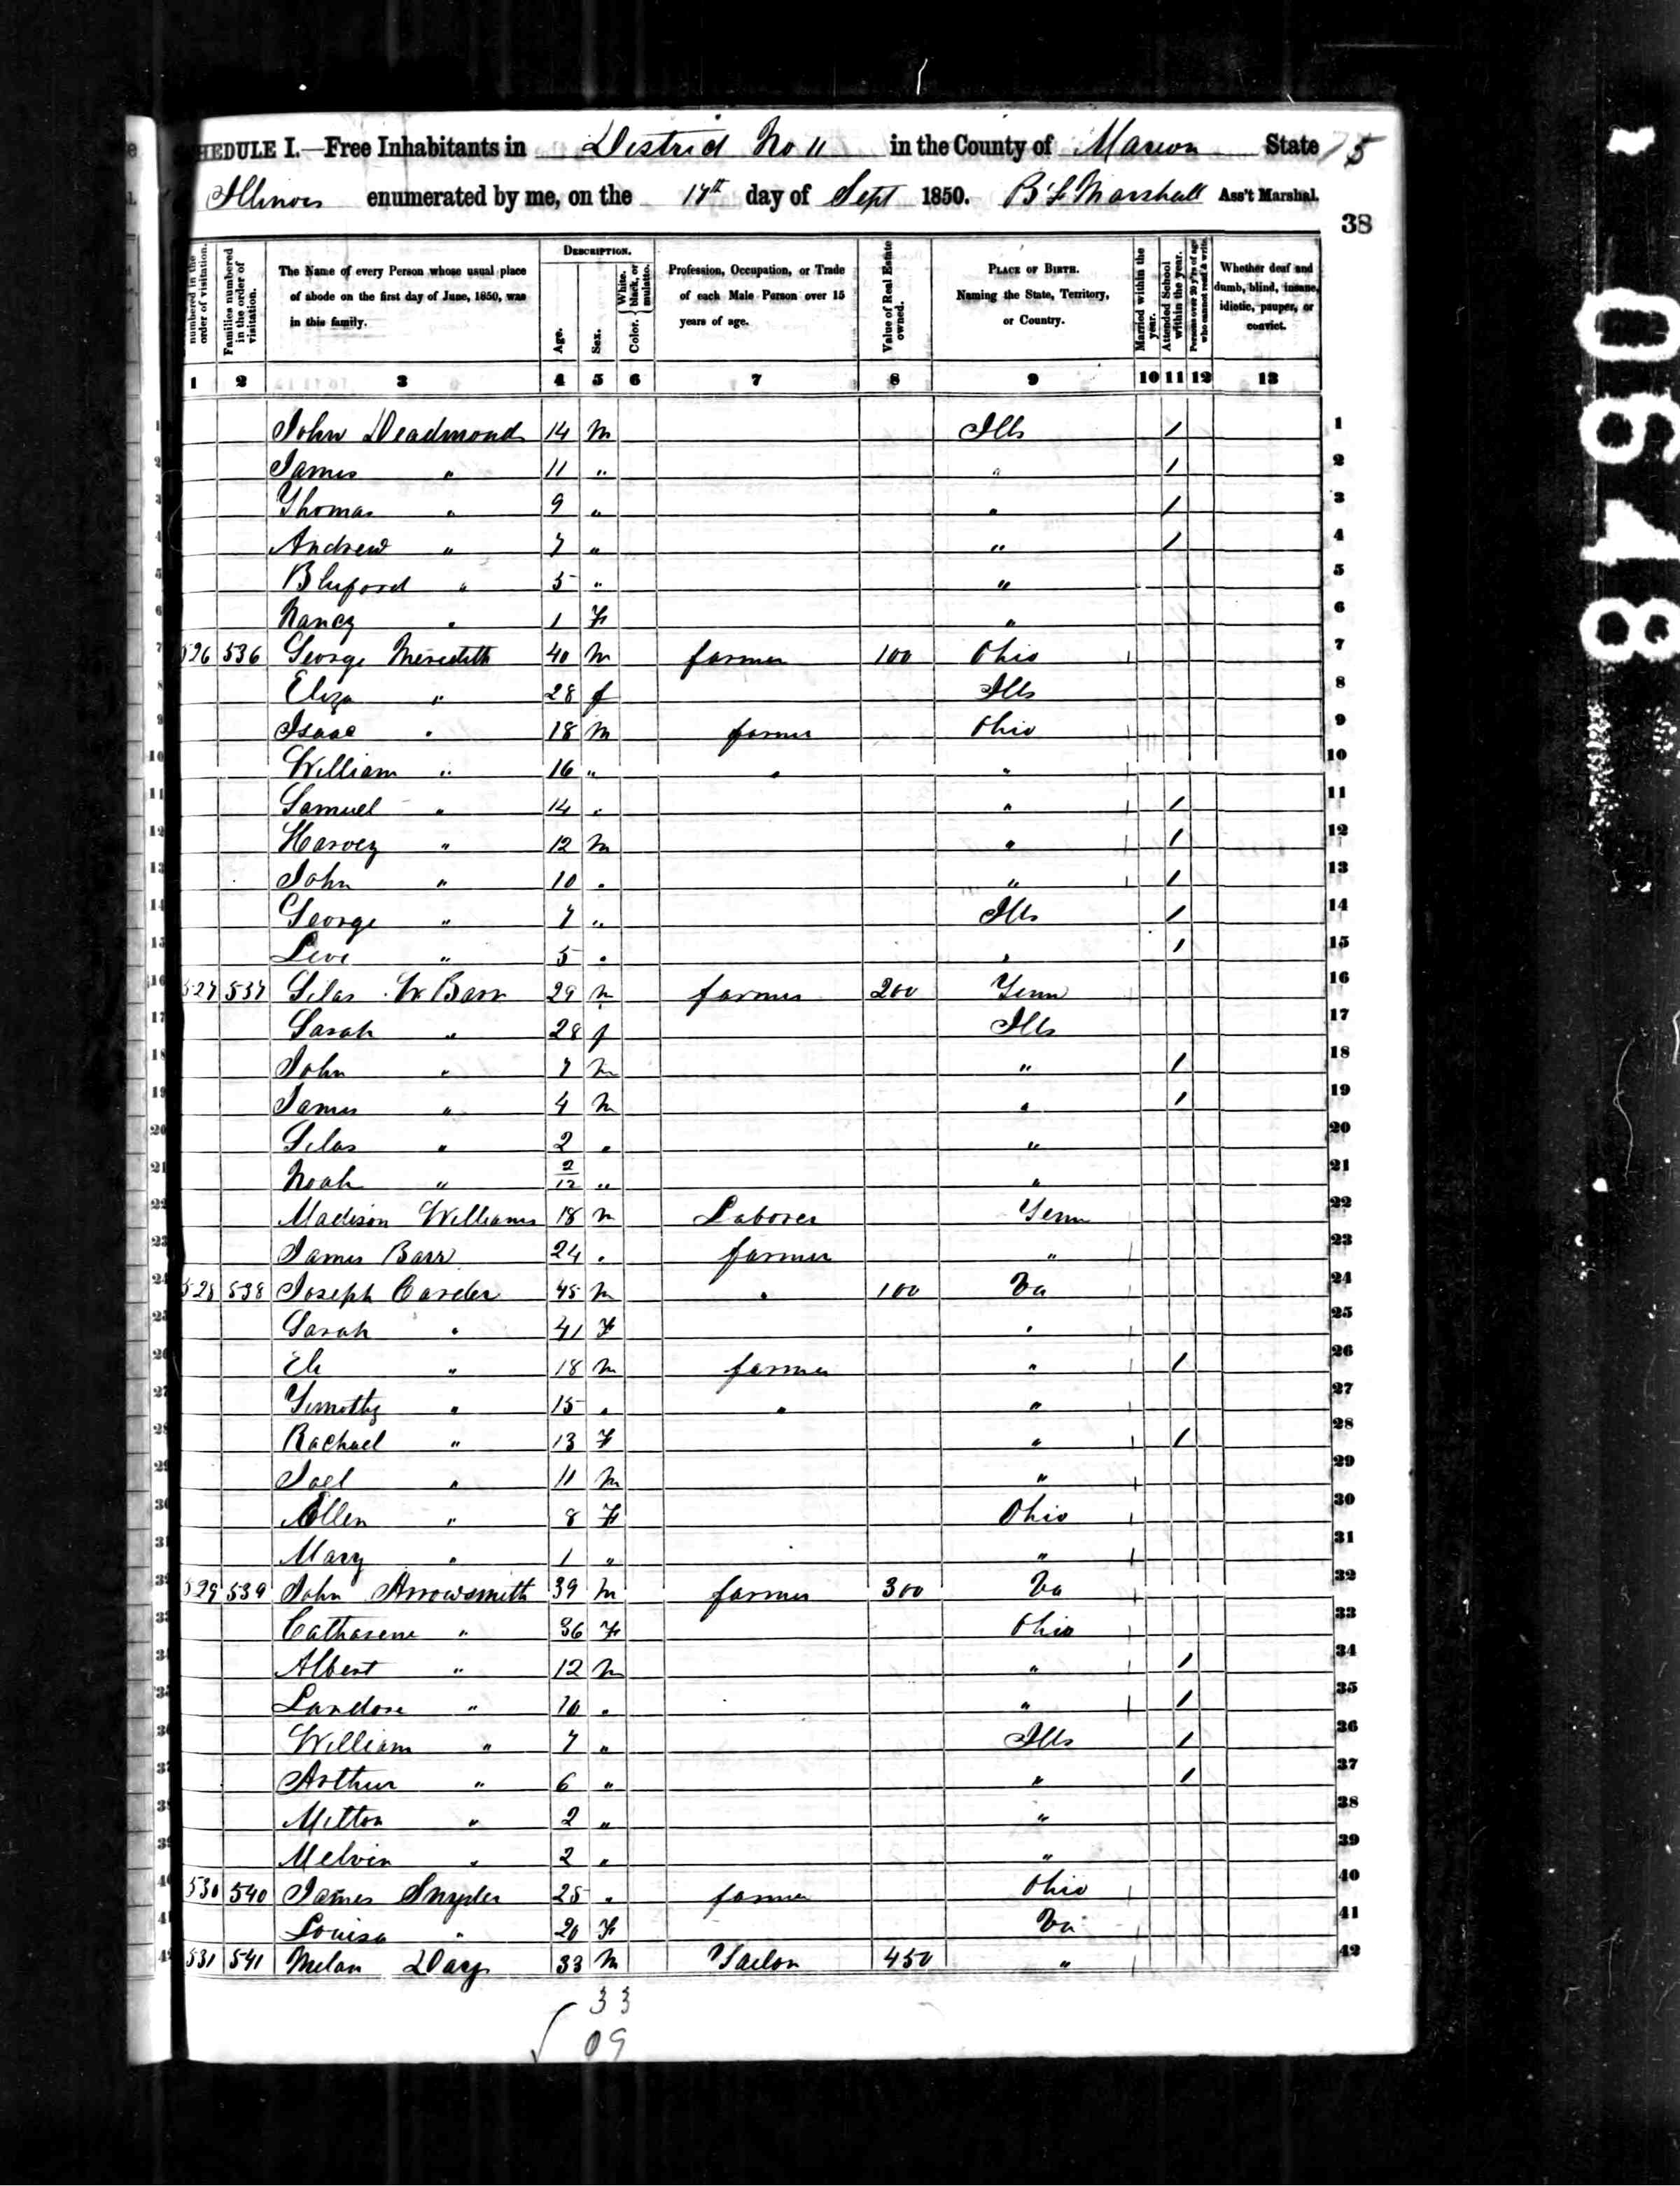 HEDULE I.—Free Inhabitants in District No 11 in the County of Marion State 75
Illinois enumerated by me, on the 17th day of Sept 1850. B F Marshall Ass't Marshal.
38
numbered in the order of visitation.
Families numbered in the order of visitation.
The Name of every Person whose usual place of abode on the first day of June, 1850, was in this family.
DESCRIPTION.
Age.
Sex.
Color. White, black, or mulatto.
Profession, Occupation, or Trade of each Male Person over 15 years of age.
Value of Real Estate owned.
PLACE OF BIRTH. Naming the State, Territory, or Country.
Married within the year.
Attended School within the year.
Persons over 20 y'rs of age who cannot read & write.
Whether deaf and dumb, blind, insane, idiotic, pauper, or convict.
1 2 3 4 5 6 7 8 9 10 11 12 13
John Deadmond 14 m Ills / 1
2 James " 11 " " / 2
3 Thomas " 9 " " / 3
4 Andrew " 7 " " / 4
5 Bluford " 5 " " 5
6 Nancy " 1 F " 6
7 526 536 George Meredith 40 m farmer 100 Ohio 7
8 Eliza " 28 f Ills 8
9 Isaac " 18 m farmer Ohio 9
10 William " 16 " " " 10
11 Samuel " 14 " " / 11
12 Harvey " 12 m " / 12
13 John " 10 " " / 13
14 George " 7 " Ills / 14
15 Levi " 5 " " / 15
16 527 537 Silas W Barr 29 m farmer 200 Tenn 16
17 Sarah " 28 f Ills 17
18 John " 7 m " / 18
19 James " 4 m " / 19
20 Silas " 2 " " 20
21 Noah " 2/12 " " 21
22 Madison Williams 18 m Laborer Tenn 22
23 James Barr 24 " farmer " 23
24 528 538 Joseph Carder 45 m " 100 Va 24
25 Sarah " 41 F " 25
26 Eli " 18 m farmer " / 26
27 Timothy " 15 " " " 27
28 Rachael " 13 F " / 28
29 Joel " 11 m " 29
30 Ellen " 8 F Ohio 30
31 Mary " 1 " " 31
32 529 539 John Arrowsmith 39 m farmer 300 Va 32
33 Catharine " 36 F Ohio 33
34 Albert " 12 m " / 34
35 " 10 " " / 35
36 William " 7 " Ills / 36
37 Arthur " 6 " " / 37
38 Milton " 2 " " 38
39 Melvin " 2 " " 39
40 530 540 James Snyder 25 " farmer Ohio 40
41 Louisa " 20 F Va 41
42 531 541 Day 33 m Tailor 450 " 42
33
09
0648